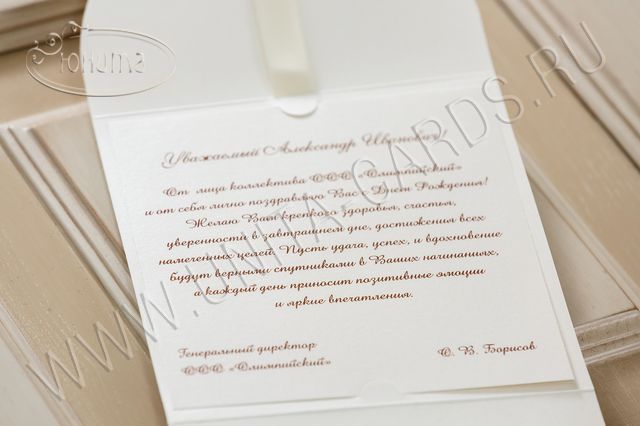 Юнита
Уважаемый Александр Иванович!
От лица коллектива ООО «Олимпийский»
и от себя лично поздравляю Вас с Днем Рождения!
Желаю Вам крепкого здоровья, счастья,
уверенности в завтрашнем дне, достижения всех
намеченных целей. Пусть удача, успех, и вдохновение
будут верными спутниками в Ваших начинаниях,
а каждый день приносит позитивные эмоции
и яркие впечатления.
Генеральный директор
ООО «Олимпийский»
О. В. Борисов
WWW.UNITA-CARDS.RU